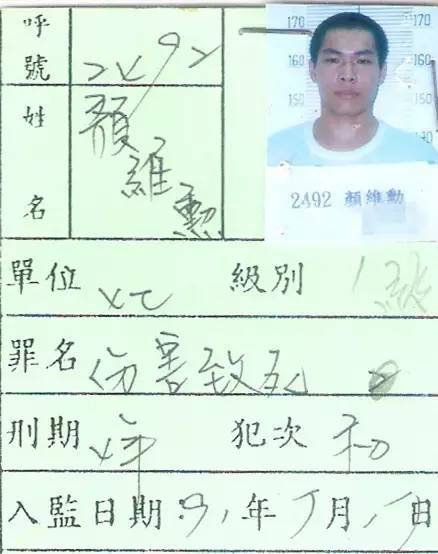 呼號 2492
姓名 顏維勳
170 170
160 160
150 150
2492 顏維勳
單位 級別 1級
罪名 伤害致死
刑期 犯次 初
入監日期:91年 月 日